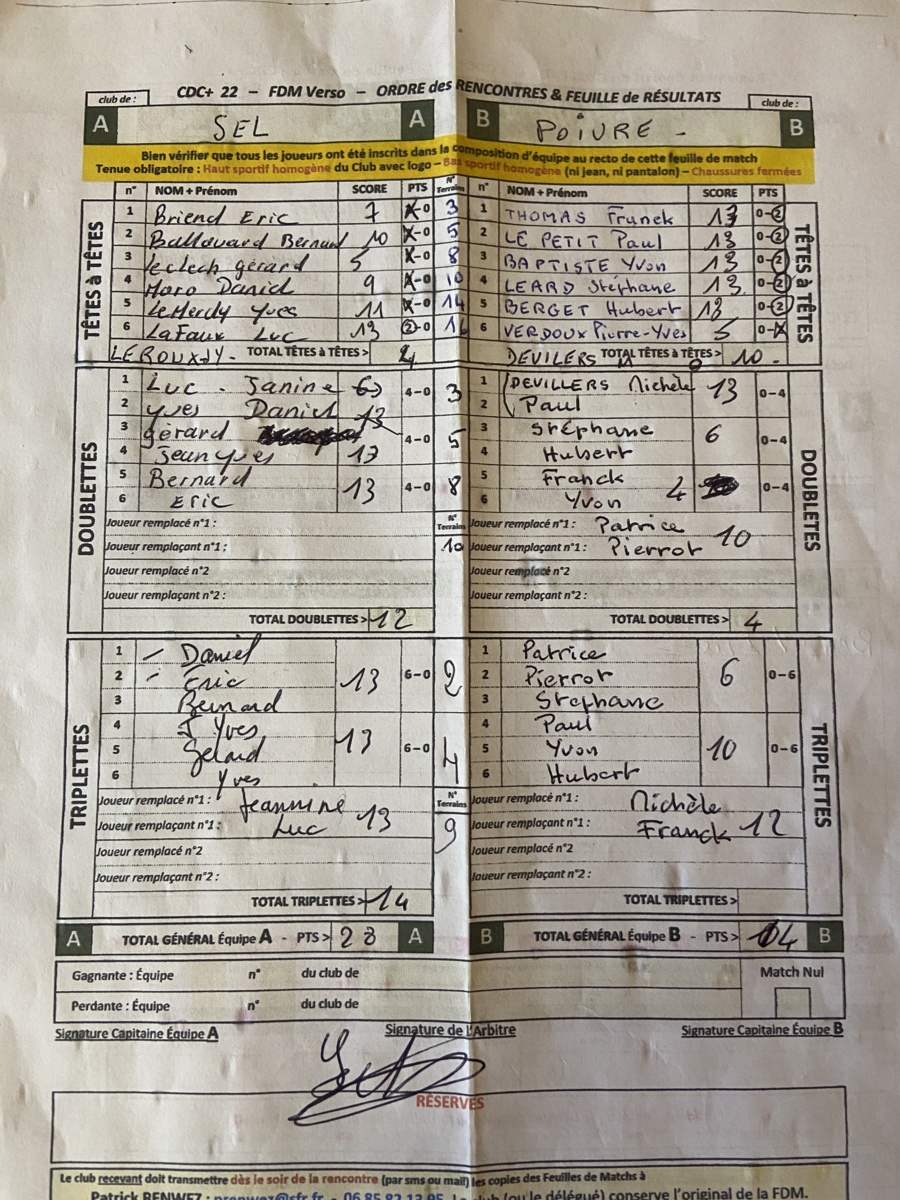 CDC+ 22 – FDM Verso – ORDRE des RENCONTRES & FEUILLE de RÉSULTATS
club de : club de :
A SEL A B POIVRE - B
Bien vérifier que tous les joueurs ont été inscrits dans la composition d'équipe au recto de cette feuille de match
Tenue obligatoire : Haut sportif homogène du Club avec logo – Bas sportif homogène (ni jean, ni pantalon) – Chaussures fermées
n° NOM + Prénom SCORE PTS N° Terrains n° NOM + Prénom SCORE PTS
TÊTES à TÊTES TÊTES à TÊTES
1 Briend Eric 7 -0 3 1 THOMAS Franck 13 0-2
2 Ballouard Bernard 10 -0 5 2 LE PETIT Paul 13 0-2
3 Leclech gérard 5 -0 8 3 BAPTISTE Yvon 13 0-2
4 Moro Daniel 9 -0 10 4 LEARD Stéphane 13 0-2
5 LeMerdy Yves 11 -0 14 5 BERGET Hubert 13 0-2
6 LaFaux Luc 13 2-0 6 VERDOUX Pierre-Yves 5 0-
LEROUX JY - TOTAL TÊTES à TÊTES > 2 DEVILERS TOTAL TÊTES à TÊTES > 10 -
DOUBLETTES DOUBLETTES
1 Luc - Janine 4-0 3 1 DEVILLERS Michèle 13 0-4
2 Yves Daniel 13 2 Paul
3 gérard 4-0 5 3 Stéphane 6 0-4
4 Jean yves 4 Hubert
5 Bernard 13 4-0 8 5 Franck 4 0-4
6 Eric 6 Yvon
Joueur remplacé n°1 : N° Terrains Joueur remplacé n°1 : Patrice 10
Joueur remplaçant n°1 : 10 Joueur remplaçant n°1 : Pierrot
Joueur remplacé n°2 Joueur remplacé n°2
Joueur remplaçant n°2 : Joueur remplaçant n°2 :
TOTAL DOUBLETTES > 12 TOTAL DOUBLETTES > 4
TRIPLETTES TRIPLETTES
1 Daniel 1 Patrice
2 Eric 13 6-0 2 2 Pierrot 6 0-6
3 Bernard 3 Stephane
4 J Yves 4 Paul
5 Gerard 13 6-0 4 5 Yvon 10 0-6
6 Yves 6 Hubert
Joueur remplacé n°1 : Jeannine N° Terrains Joueur remplacé n°1 : Michèle
Joueur remplaçant n°1 : Luc 13 9 Joueur remplaçant n°1 : Franck 12
Joueur remplacé n°2 Joueur remplacé n°2
Joueur remplaçant n°2 : Joueur remplaçant n°2 :
TOTAL TRIPLETTES > 14 TOTAL TRIPLETTES >
A TOTAL GÉNÉRAL Équipe A - PTS > 28 A B TOTAL GÉNÉRAL Équipe B - PTS > 14 B
Gagnante : Équipe n° du club de Match Nul
Perdante : Équipe n° du club de
Signature Capitaine Équipe A Signature de l'Arbitre Signature Capitaine Équipe B
RÉSERVES
Le club recevant doit transmettre dès le soir de la rencontre (par sms ou mail) les copies des Feuilles de Matchs à
Patrick RENWEZ : prenwez@sfr.fr - 06 85 82 13 95 (ou le délégué) conserve l'original de la FDM.